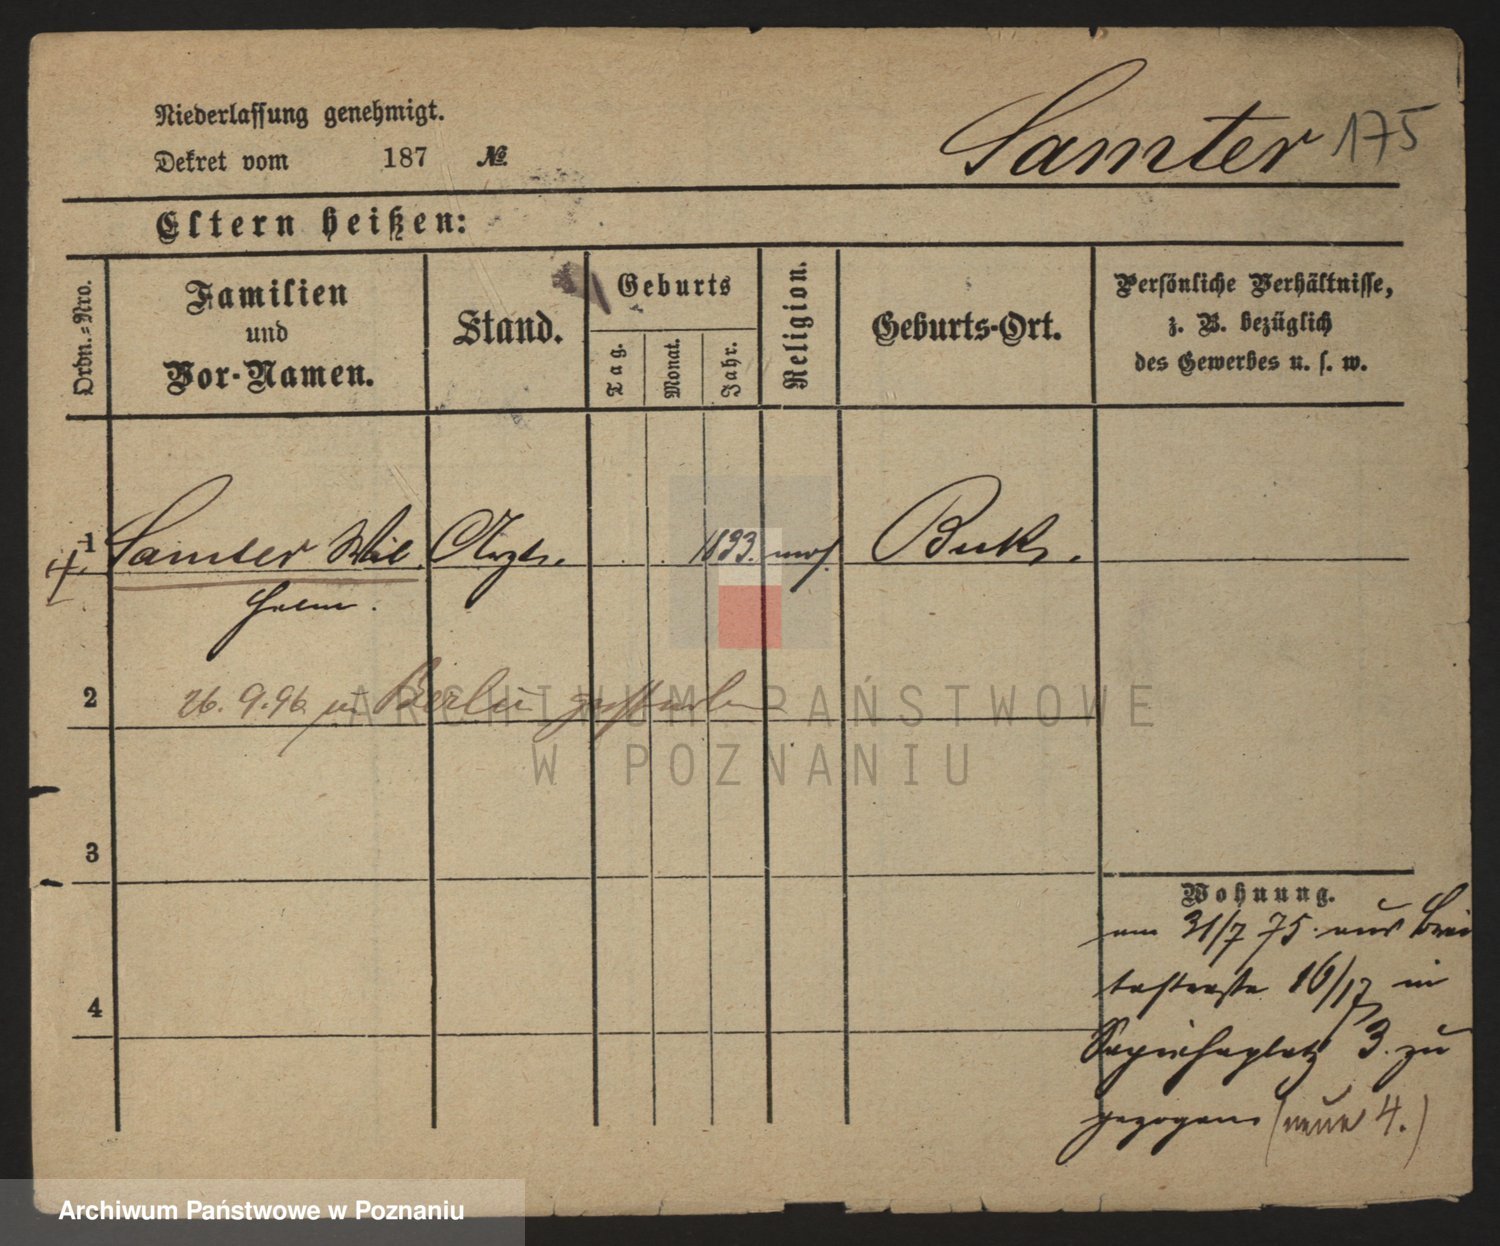 Niederlassung genehmigt.
Dekret vom 187 №
Samter 175
Eltern heißen:
Ordn.=Nro.
Familien
und
Vor-Namen.
Stand.
Geburts
Tag.
Monat.
Jahr.
Religion.
Geburts-Ort.
Persönliche Verhältnisse,
z. B. bezüglich
des Gewerbes u. s. w.
1 Samter Wil Arzt. 1833. mos. Buk.
helm.
2 26. 9. 96 in Berlin gestorben
3
4
Wohnung.
am 31/7 75. aus Brei
testraße 16/17 in
Sapiehaplatz 3. zu
gezogen (neue 4.)
ARCHIWUM PAŃSTWOWE
W POZNANIU
Archiwum Państwowe w Poznaniu